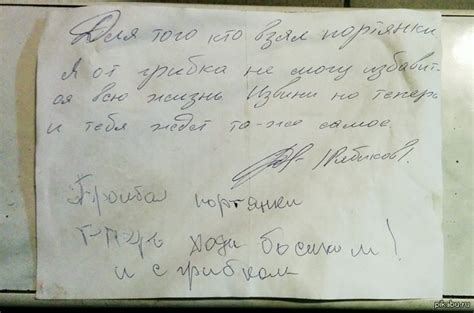 Для того кто взял портянки
Я от грибка не могу избавит-
ся всю жизнь. Извини но теперь
и тебя ждет то-же самое
Рябиков.
портянки
ходи босиком!
и с грибком
pikabu.ru